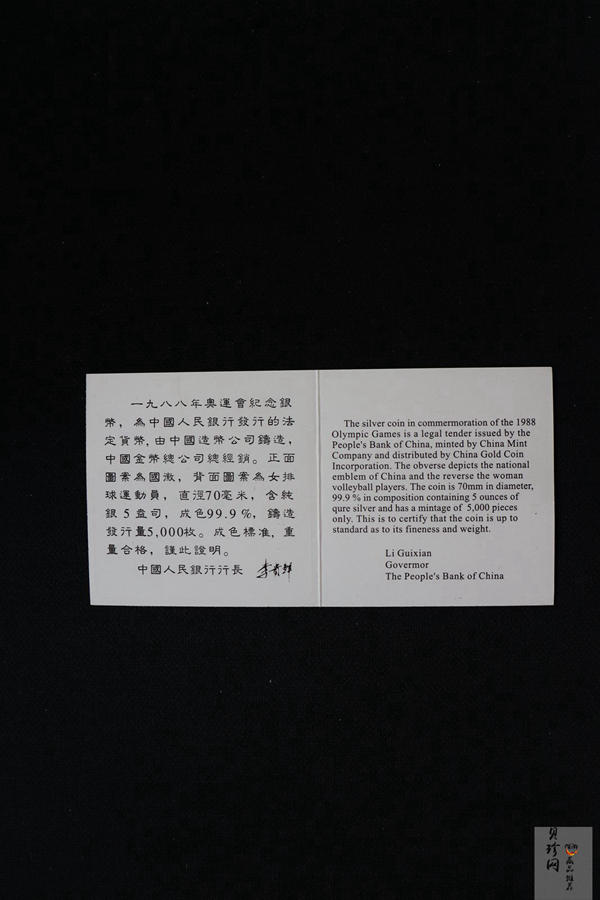 一九八八年奧運會紀念銀
幣，為中國人民銀行發行的法
定貨幣,由中國造幣公司鑄造，
中國金幣總公司總經銷。正面
圖案為國徽，背面圖案為女排
球運動員，直徑70毫米，含純
銀5盎司，成色99.9%，鑄造
發行量5,000枚。成色標准,重
量合格，謹此證明。
中國人民銀行行長 李貴鮮
The silver coin in commermoration of the 1988
Olympic Games is a legal tender issued by the
People's Bank of China, minted by China Mint
Company and distributed by China Gold Coin
Incorporation. The obverse depicts the national
emblem of China and the reverse the woman
volleyball players. The coin is 70mm in diameter,
99.9 % in composition containing 5 ounces of
qure silver and has a mintage of 5,000 pieces
only. This is to certify that the coin is up to
standard as to its fineness and weight.
Li Guixian
Govermor
The People's Bank of China
贝珍网
藏品推荐